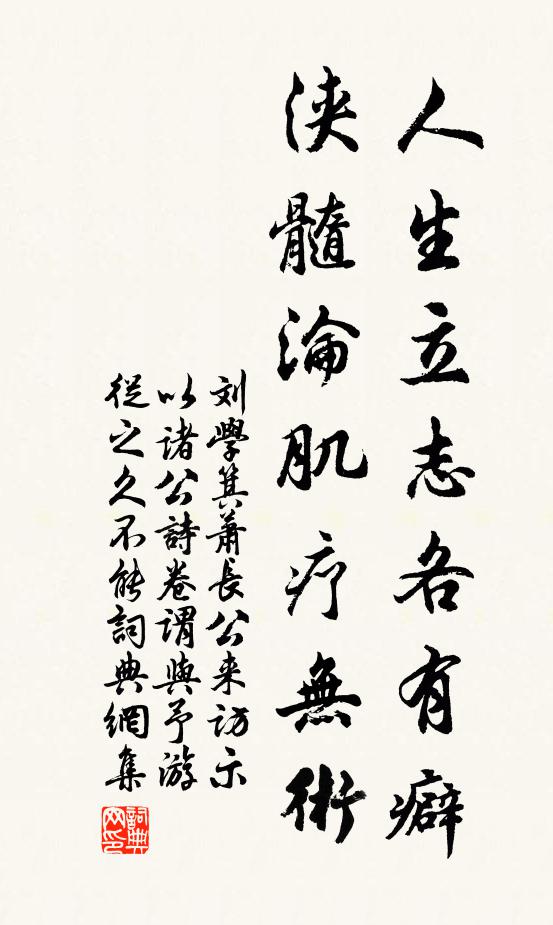 人生立志各有癖
浹髓淪肌疗無術
刘學箕蕭長公来訪示
以诸公詩卷謂與予游
從之久不能詞典網集
詞典
网印